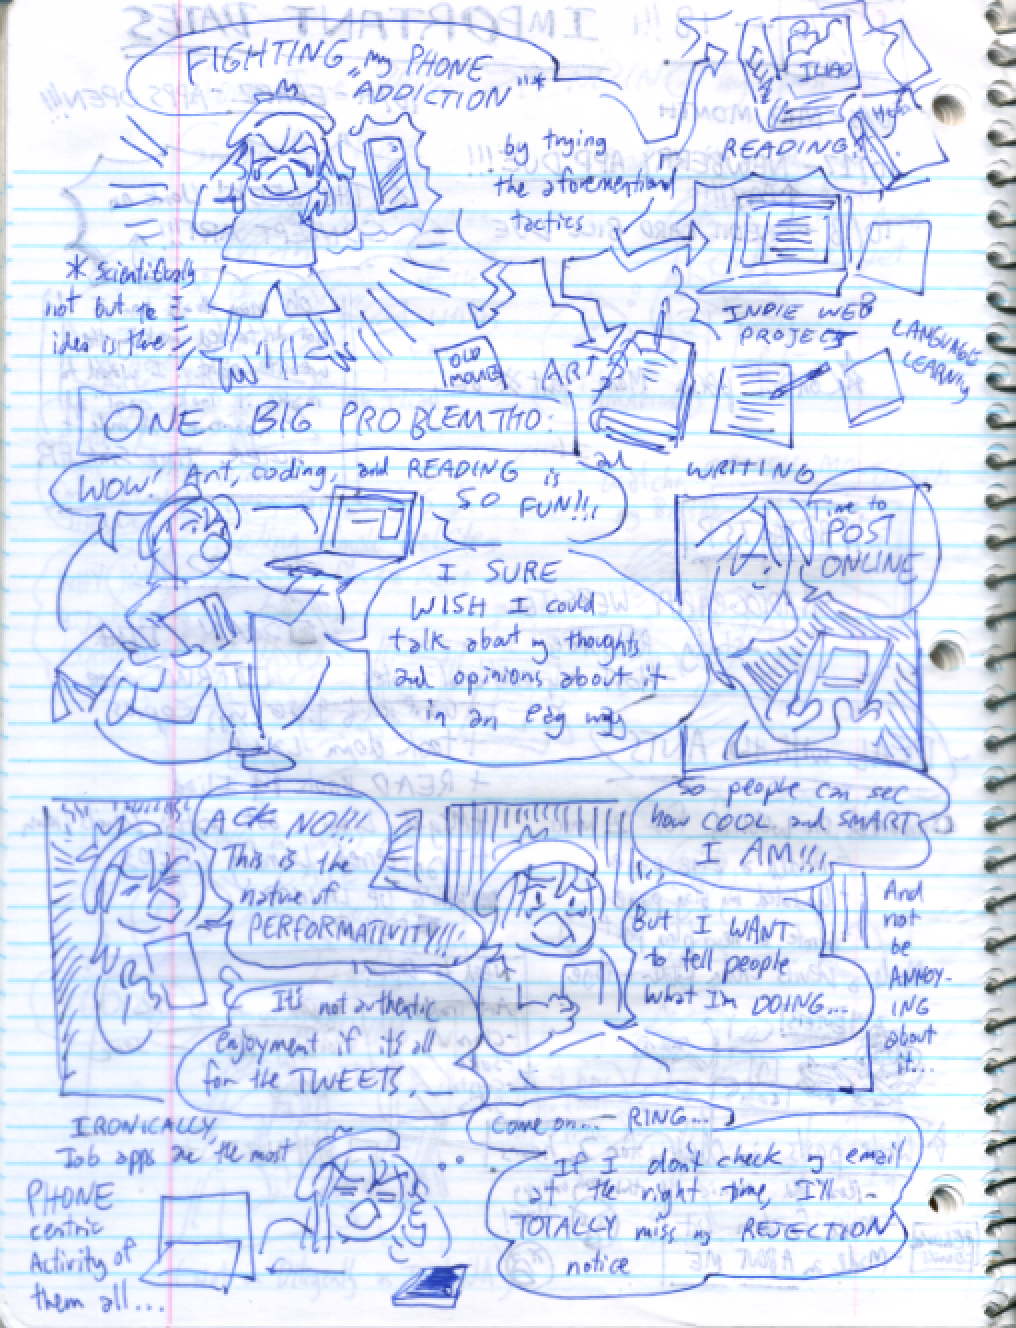 FIGHTING my PHONE
ADDICTION"*
by trying
the aforementioned
tactics
ILIAD
READING!
* scientifically
not but the
idea is there
INDIE WEB
PROJECT
LANGUAGE
LEARNING
OLD
MOVIES
ART
and
WRITING
ONE BIG PROBLEM THO:
WOW! Art, coding, and READING is
SO FUN!!!
I SURE
WISH I could
talk about my thoughts
and opinions about it
in an easy way
Time to
POST
ONLINE
So people can see
how COOL and SMART
I AM!!!
ACK NO!!!
This is the
nature of
PERFORMATIVITY!!!
It's not authentic
enjoyment if it's all
for the TWEETS,
But I WANT
to tell people
what I'm DOING...
And
not
be
ANNOY-
ING
about
it...
IRONICALLY,
Job apps are the most
PHONE
centric
Activity of
them all...
Come on... RING...
If I don't check my email
at the right time, I'll
TOTALLY miss my REJECTION
notice